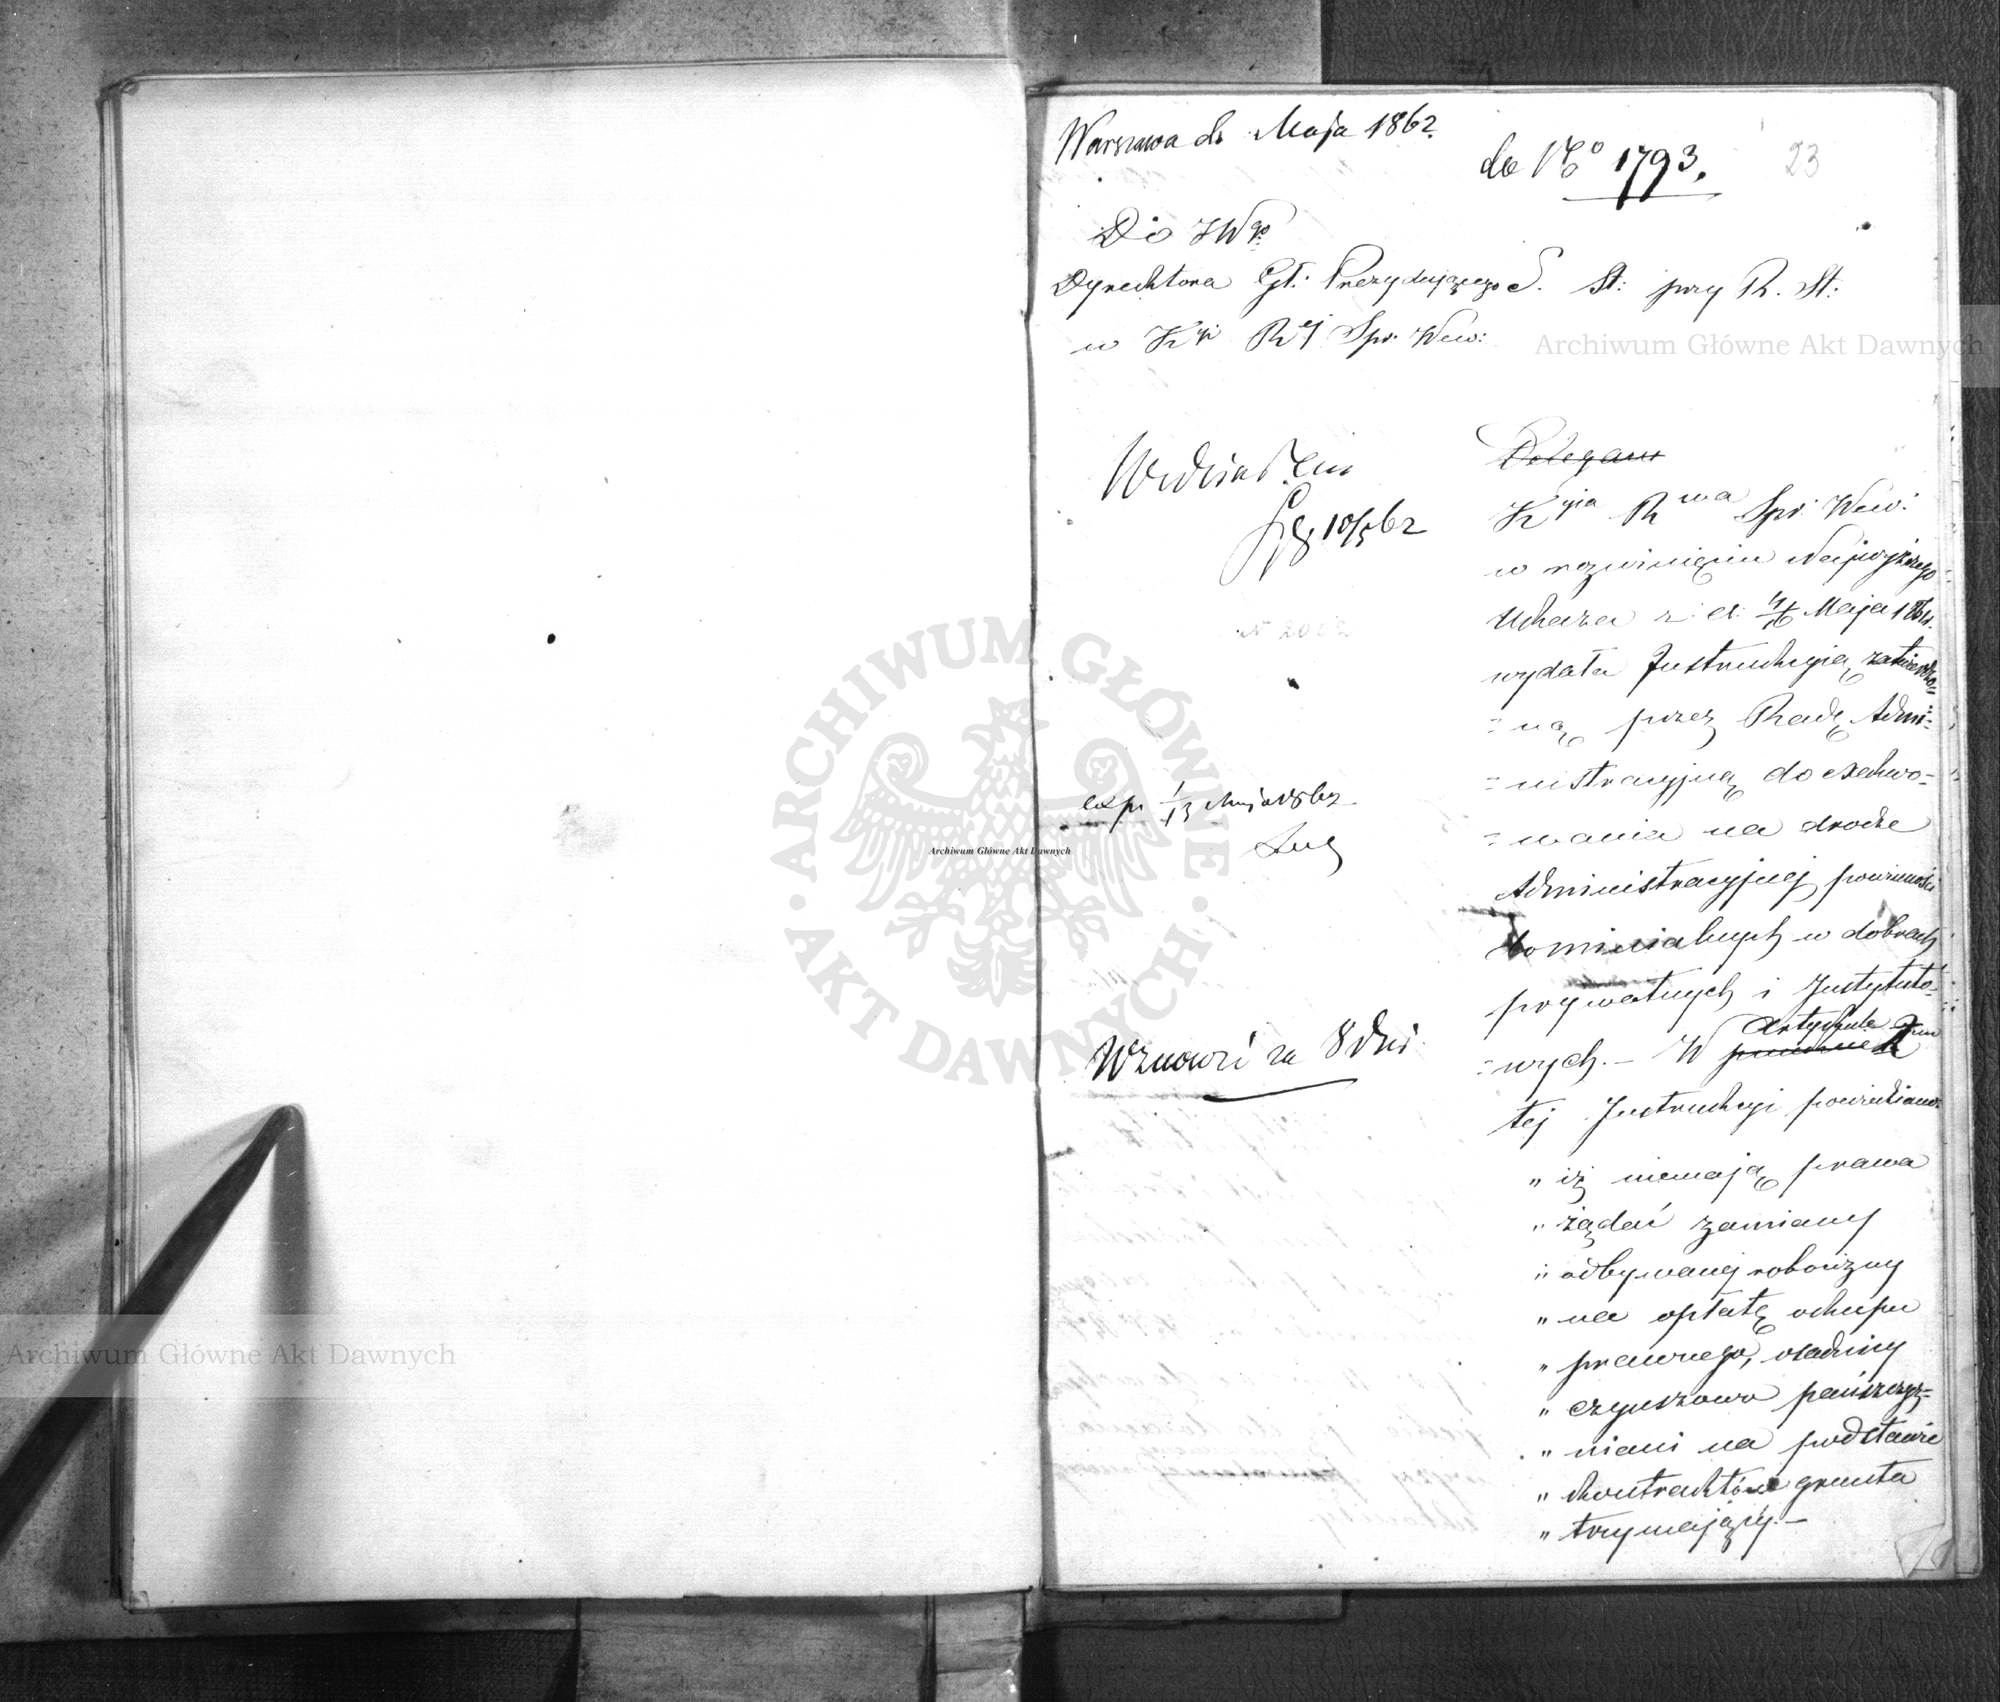 Warszawa d. Maja 1862.
do No 1793.
23
Do JWgo
Dyrektora Gł: Prezydującego S. St: przy R. St:
w Kyi Rej Spr. Wew:
Delegaux
10/5 62
Kyia Rwa Spr. Wew:
w rozwinięciu Najwyższego
Ukazu z d. 4/16 Maja 1861.
wydała Instrukcyią zatwierdzo=
=ną przez Radę Admi=
=nistracyjną do exekwo=
=wania na drodze
Administracyjnej powinności
dominialnych w dobrach
prywatnych i Instytuto=
=wych. – W artykule
tej Instrukcyi powiedziano:
" iż niemają prawa
" żądać zamiany
" odbywanej robocizny
" na opłatę okupu
" prawnego, osadnicy
" czynszowo pańszczyź=
" niani na podstawie
" kontraktów grunta
" trzymający. –
exp. 1/13 Maja 1862
Wznowić za 8 dni.
Archiwum Główne Akt Dawnych
Archiwum Główne Akt Dawnych
Archiwum Główne Akt Dawnych
ARCHIWUM GŁÓWNE AKT DAWNYCH